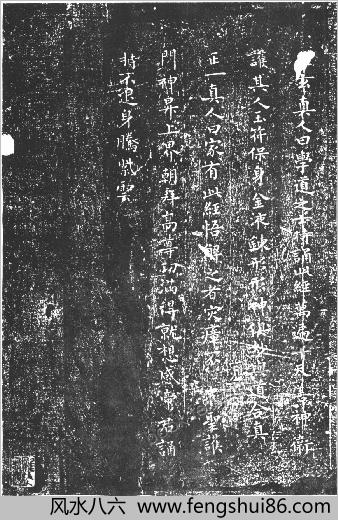 玄真人曰學道之士持誦此經萬遍十天神衛
護其人玉符保身金液鍊形形神俱妙道合真
正一真人曰家有此經悟解之者灾障不聖護
門神昇上界朝拜高尊功滿得就想感帝君誦
持不退身騰紫雲
风水八六 www.fengshui86.com